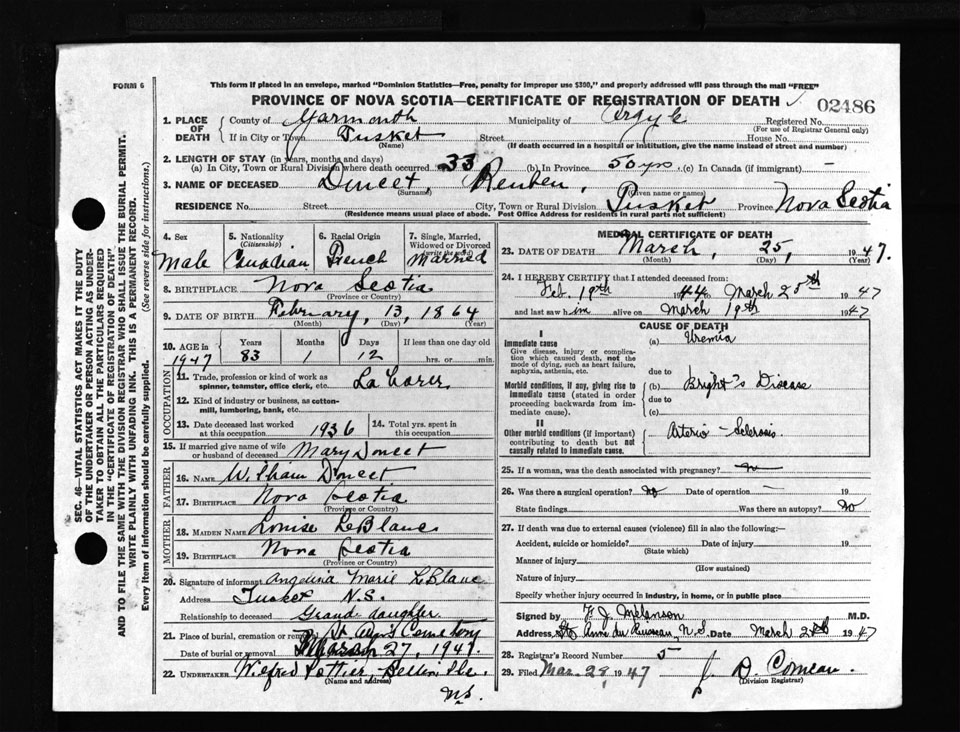 FORM 6
This form if placed in an envelope, marked "Dominion Statistics—Free, penalty for improper use $300," and properly addressed will pass through the mail "FREE"
PROVINCE OF NOVA SCOTIA—CERTIFICATE OF REGISTRATION OF DEATH
02486
1. PLACE OF DEATH
County of Yarmouth Municipality of Argyle Registered No.
(For use of Registrar General only)
If in City or Town Tusket Street House No.
(Name) (If death occurred in a hospital or institution, give the name instead of street and number)
2. LENGTH OF STAY (in years, months and days)
(a) In City, Town or Rural Division where death occurred 33 (b) In Province 50 yrs (c) In Canada (if immigrant) —
3. NAME OF DECEASED Doucet Reuben,
(Surname) (Given name or names)
RESIDENCE No. Street City, Town or Rural Division Tusket Province Nova Scotia
(Residence means usual place of abode. Post Office Address for residents in rural parts not sufficient)
4. Sex
Male
5. Nationality
(Citizenship)
Canadian
6. Racial Origin
French
7. Single, Married, Widowed or Divorced
(write the word)
Married
8. BIRTHPLACE Nova Scotia
(Province or Country)
9. DATE OF BIRTH February, 13, 1864
(Month) (Day) (Year)
10. AGE in 1947
Years 83
Months 1
Days 12
If less than one day old
hrs. or min.
OCCUPATION
11. Trade, profession or kind of work as spinner, teamster, office clerk, etc. Laborer
12. Kind of industry or business, as cotton-mill, lumbering, bank, etc.
13. Date deceased last worked at this occupation 1936
14. Total yrs. spent in this occupation
15. If married give name of wife or husband of deceased Mary Doucet
FATHER
16. NAME William Doucet
17. BIRTHPLACE Nova Scotia
(Province or Country)
MOTHER
18. MAIDEN NAME Louise LeBlanc
19. BIRTHPLACE Nova Scotia
(Province or Country)
20. Signature of informant Angelina Marie LeBlanc
Address Tusket N.S.
Relationship to deceased Grand daughter
21. Place of burial, cremation or removal Cemetery
Date of burial or removal March 27, 1947.
22. UNDERTAKER Wilfred Pottier
(Name and address)
N.S.
MEDICAL CERTIFICATE OF DEATH
23. DATE OF DEATH March, 25, 1947.
(Month) (Day) (Year)
24. I HEREBY CERTIFY that I attended deceased from:
Feb. 19th 1944 to March 25th 1947
and last saw him alive on March 19th 1947
CAUSE OF DEATH
I
Immediate cause
Give disease, injury or complication which caused death, not the mode of dying, such as heart failure, asphyxia, asthenia, etc.
(a) Uremia
due to
Morbid conditions, if any, giving rise to immediate cause (stated in order proceeding backwards from immediate cause).
(b) Bright's Disease
due to
(c)
II
Other morbid conditions (if important) contributing to death but not causally related to immediate cause.
Arterio-Sclerosis
25. If a woman, was the death associated with pregnancy? no
26. Was there a surgical operation? No Date of operation — 19
State findings Was there an autopsy? No
27. If death was due to external causes (violence) fill in also the following:—
Accident, suicide or homicide? Date of injury 19
(State which)
Manner of injury
(How sustained)
Nature of injury
Specify whether injury occurred in industry, in home, or in public place
Signed by F. J. Melanson M.D.
Address Ste Anne du Ruisseau, N.S. Date March 1947
28. Registrar's Record Number 5
29. Filed Mar. 28, 1947 J. D. Comeau.
(Division Registrar)
SEC. 46—VITAL STATISTICS ACT MAKES IT THE DUTY
OF THE UNDERTAKER OR PERSON ACTING AS UNDERTAKER TO OBTAIN ALL THE PARTICULARS REQUIRED
IN THE "CERTIFICATE OF REGISTRATION OF DEATH"
AND TO FILE THE SAME WITH THE DIVISION REGISTRAR WHO SHALL ISSUE THE BURIAL PERMIT.
WRITE PLAINLY WITH UNFADING INK. THIS IS A PERMANENT RECORD.
Every item of information should be carefully supplied. (See reverse side for instructions.)